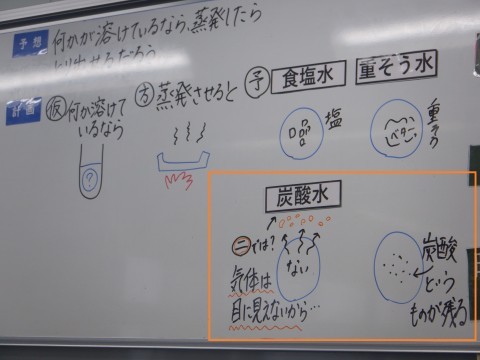 予想
何かが溶けているなら、蒸発したら
とり出せるだろう
計画
仮 何かが溶けて
いるなら
?
方 蒸発させると
予
食塩水
塩
重そう水
ベタ
重そう
炭酸水
二では?
気体は
目に見えないから…
ない
炭酸
という
ものが残る